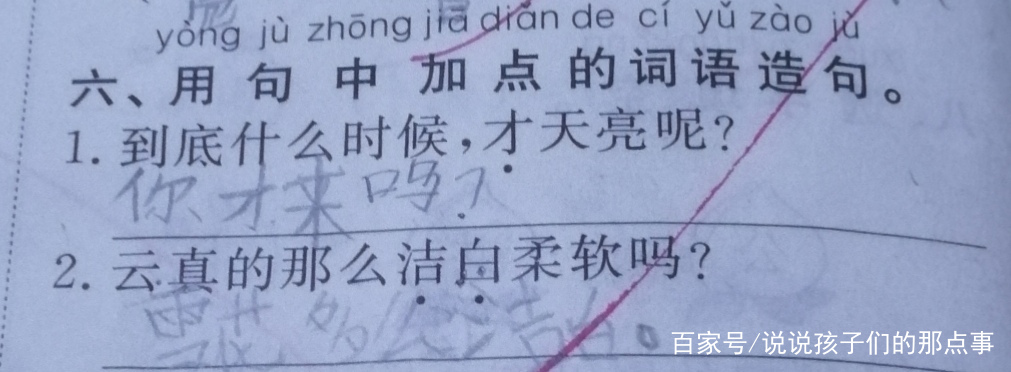 yòng jù zhōng jiā diǎn de cí yǔ zào jù
六、用句中加点的词语造句。
1. 到底什么时候，才天亮呢？
你才来吗？
2. 云真的那么洁白柔软吗？
多么洁白。
百家号/说说孩子们的那点事